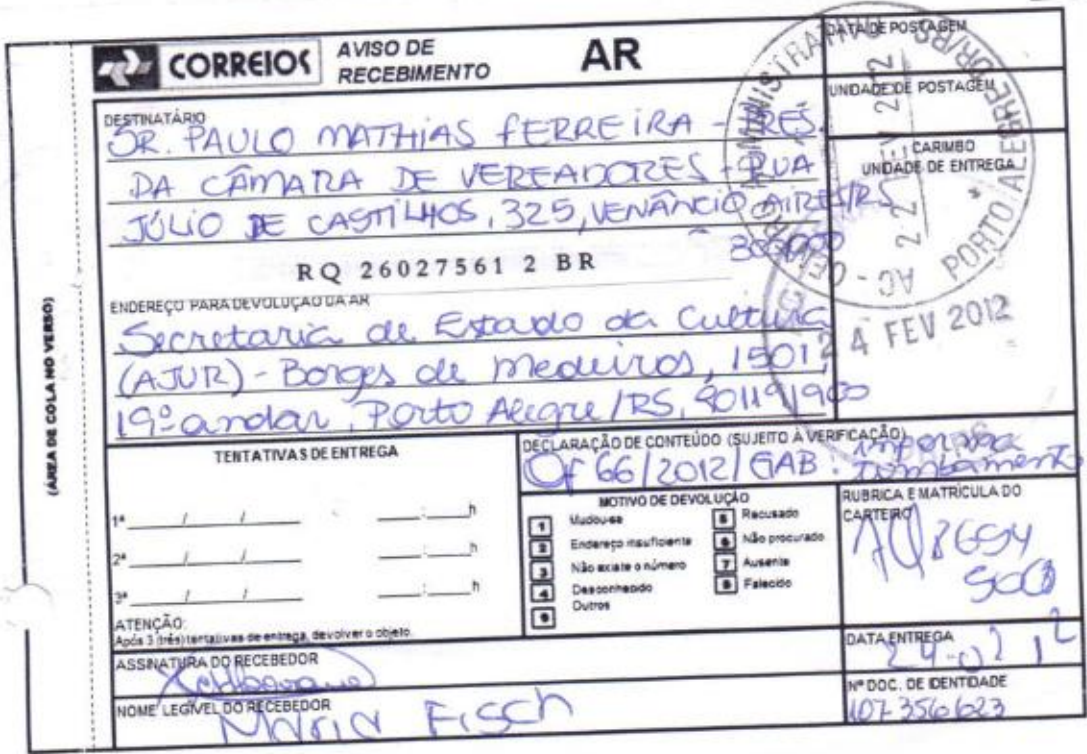 CORREIOS
AVISO DE
RECEBIMENTO
AR
DATA DE POSTAGEM
UNIDADE DE POSTAGEM
CARIMBO
UNIDADE DE ENTREGA
DESTINATÁRIO
SR. PAULO MATHIAS FERREIRA - PRES.
DA CÂMARA DE VEREADORES - RUA
JÚLIO DE CASTILHOS, 325, VENÂNCIO AIRES/RS
RQ 26027561 2 BR
ENDEREÇO PARA DEVOLUÇÃO DA AR
Secretaria de Estado da Cultura
(AJUR) - Borges de Medeiros, 1501,
19º andar, Porto Alegre/RS, 90119/900
ADMINISTRATIVO
AC
PORTO ALEGRE
22 FEV 2012
24 FEV 2012
(ÁREA DE COLA NO VERSO)
TENTATIVAS DE ENTREGA
1ª ____/____/____ ____:____h
2ª ____/____/____ ____:____h
3ª ____/____/____ ____:____h
ATENÇÃO:
Após 3 (três) tentativas de entrega, devolver o objeto.
DECLARAÇÃO DE CONTEÚDO (SUJEITO À VERIFICAÇÃO)
Of 66/2012/GAB. informa
tombamento
MOTIVO DE DEVOLUÇÃO
1 Mudou-se
2 Endereço insuficiente
3 Não existe o número
4 Desconhecido
9 Outros
5 Recusado
6 Não procurado
7 Ausente
8 Falecido
RUBRICA E MATRÍCULA DO
CARTEIRO
ASSINATURA DO RECEBEDOR
DATA ENTREGA
24-02 12
NOME LEGÍVEL DO RECEBEDOR
Maria Fisch
Nº DOC. DE IDENTIDADE
107356623